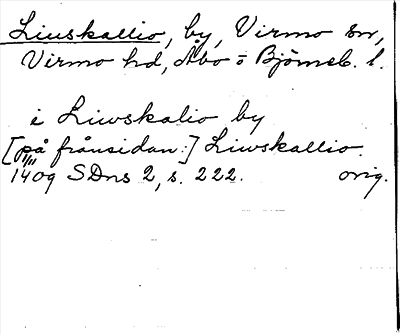 Liuskallio, by, Virmo sn,
Virmo hd, Åbo o Björneb. l.
i Liwskalio by
[på frånsidan:] Liwskallio.
1409 SDns 2, s. 222. orig.